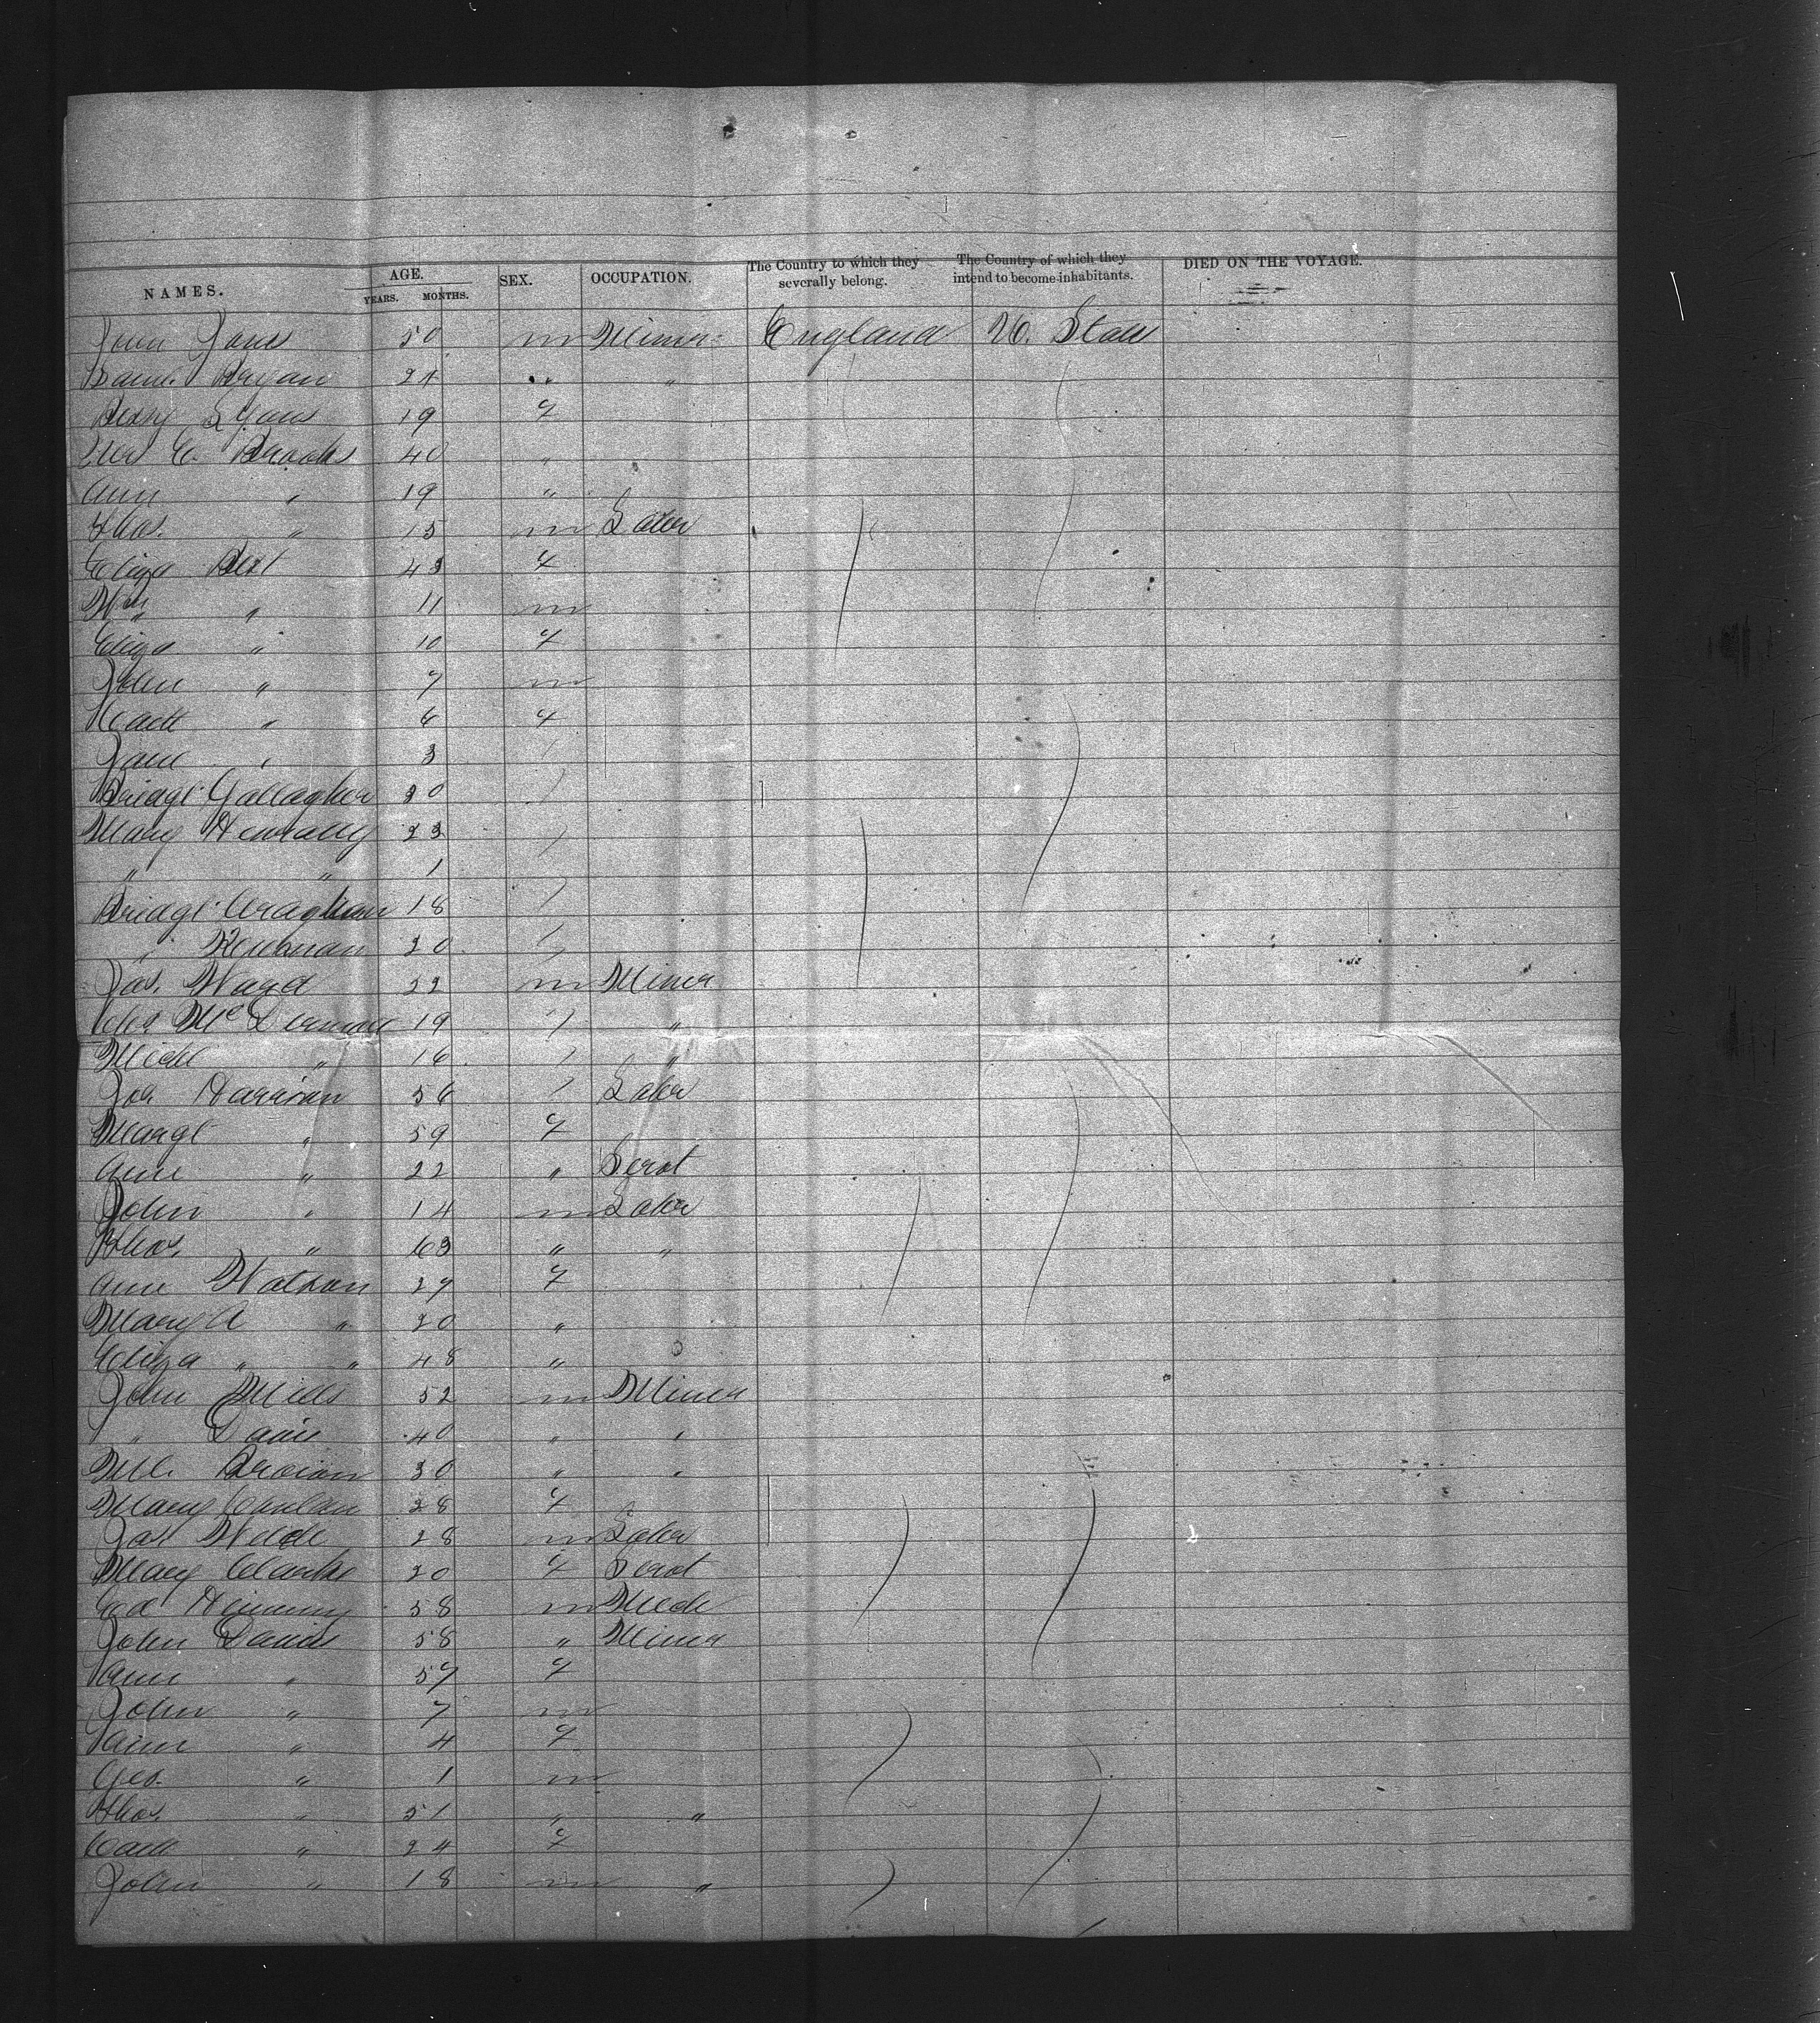 NAMES. AGE. YEARS. MONTHS. SEX. OCCUPATION. The Country to which they severally belong. The Country of which they intend to become inhabitants. DIED ON THE VOYAGE.
John Jones 50 m Miner England U. States
Saml. Bryan 24 " "
19 f
E. Brooks 40 "
Ann " 19 "
Thos. " 15 m Labr
Eliza Best 43 f
Wm " 11 m
Eliza " 10 f
John " 7 m
Cath " 6 f
Jane " 3
Bridgt Gallagher 20
Mary 23
" " 1
Bridgt 18
" 20
Jas. Ward 22 m Miner
McDermott 19 "
Michl " 16 "
Jos Harrison 56 Labr
Margt " 59 f
Ann " 22 " Servt
John " 14 m Labr
Thos. " 63 " "
Ann Watson 27 f
Mary A " 20 "
Eliza " " 48 "
John Mills 52 m Miner
" Davis 40 " "
Brown 30 " "
Mary Conlan 28 f
Jas 28 m Labr
Mary Clarke 20 f Servt
Ed 58 m Mech
John Davis 58 " Miner
Ann " 57 f
John " 7 m
Ann " 4 f
Geo. " 1 m
Thos. " 51 " "
Cath " 24 f
John " 18 m "